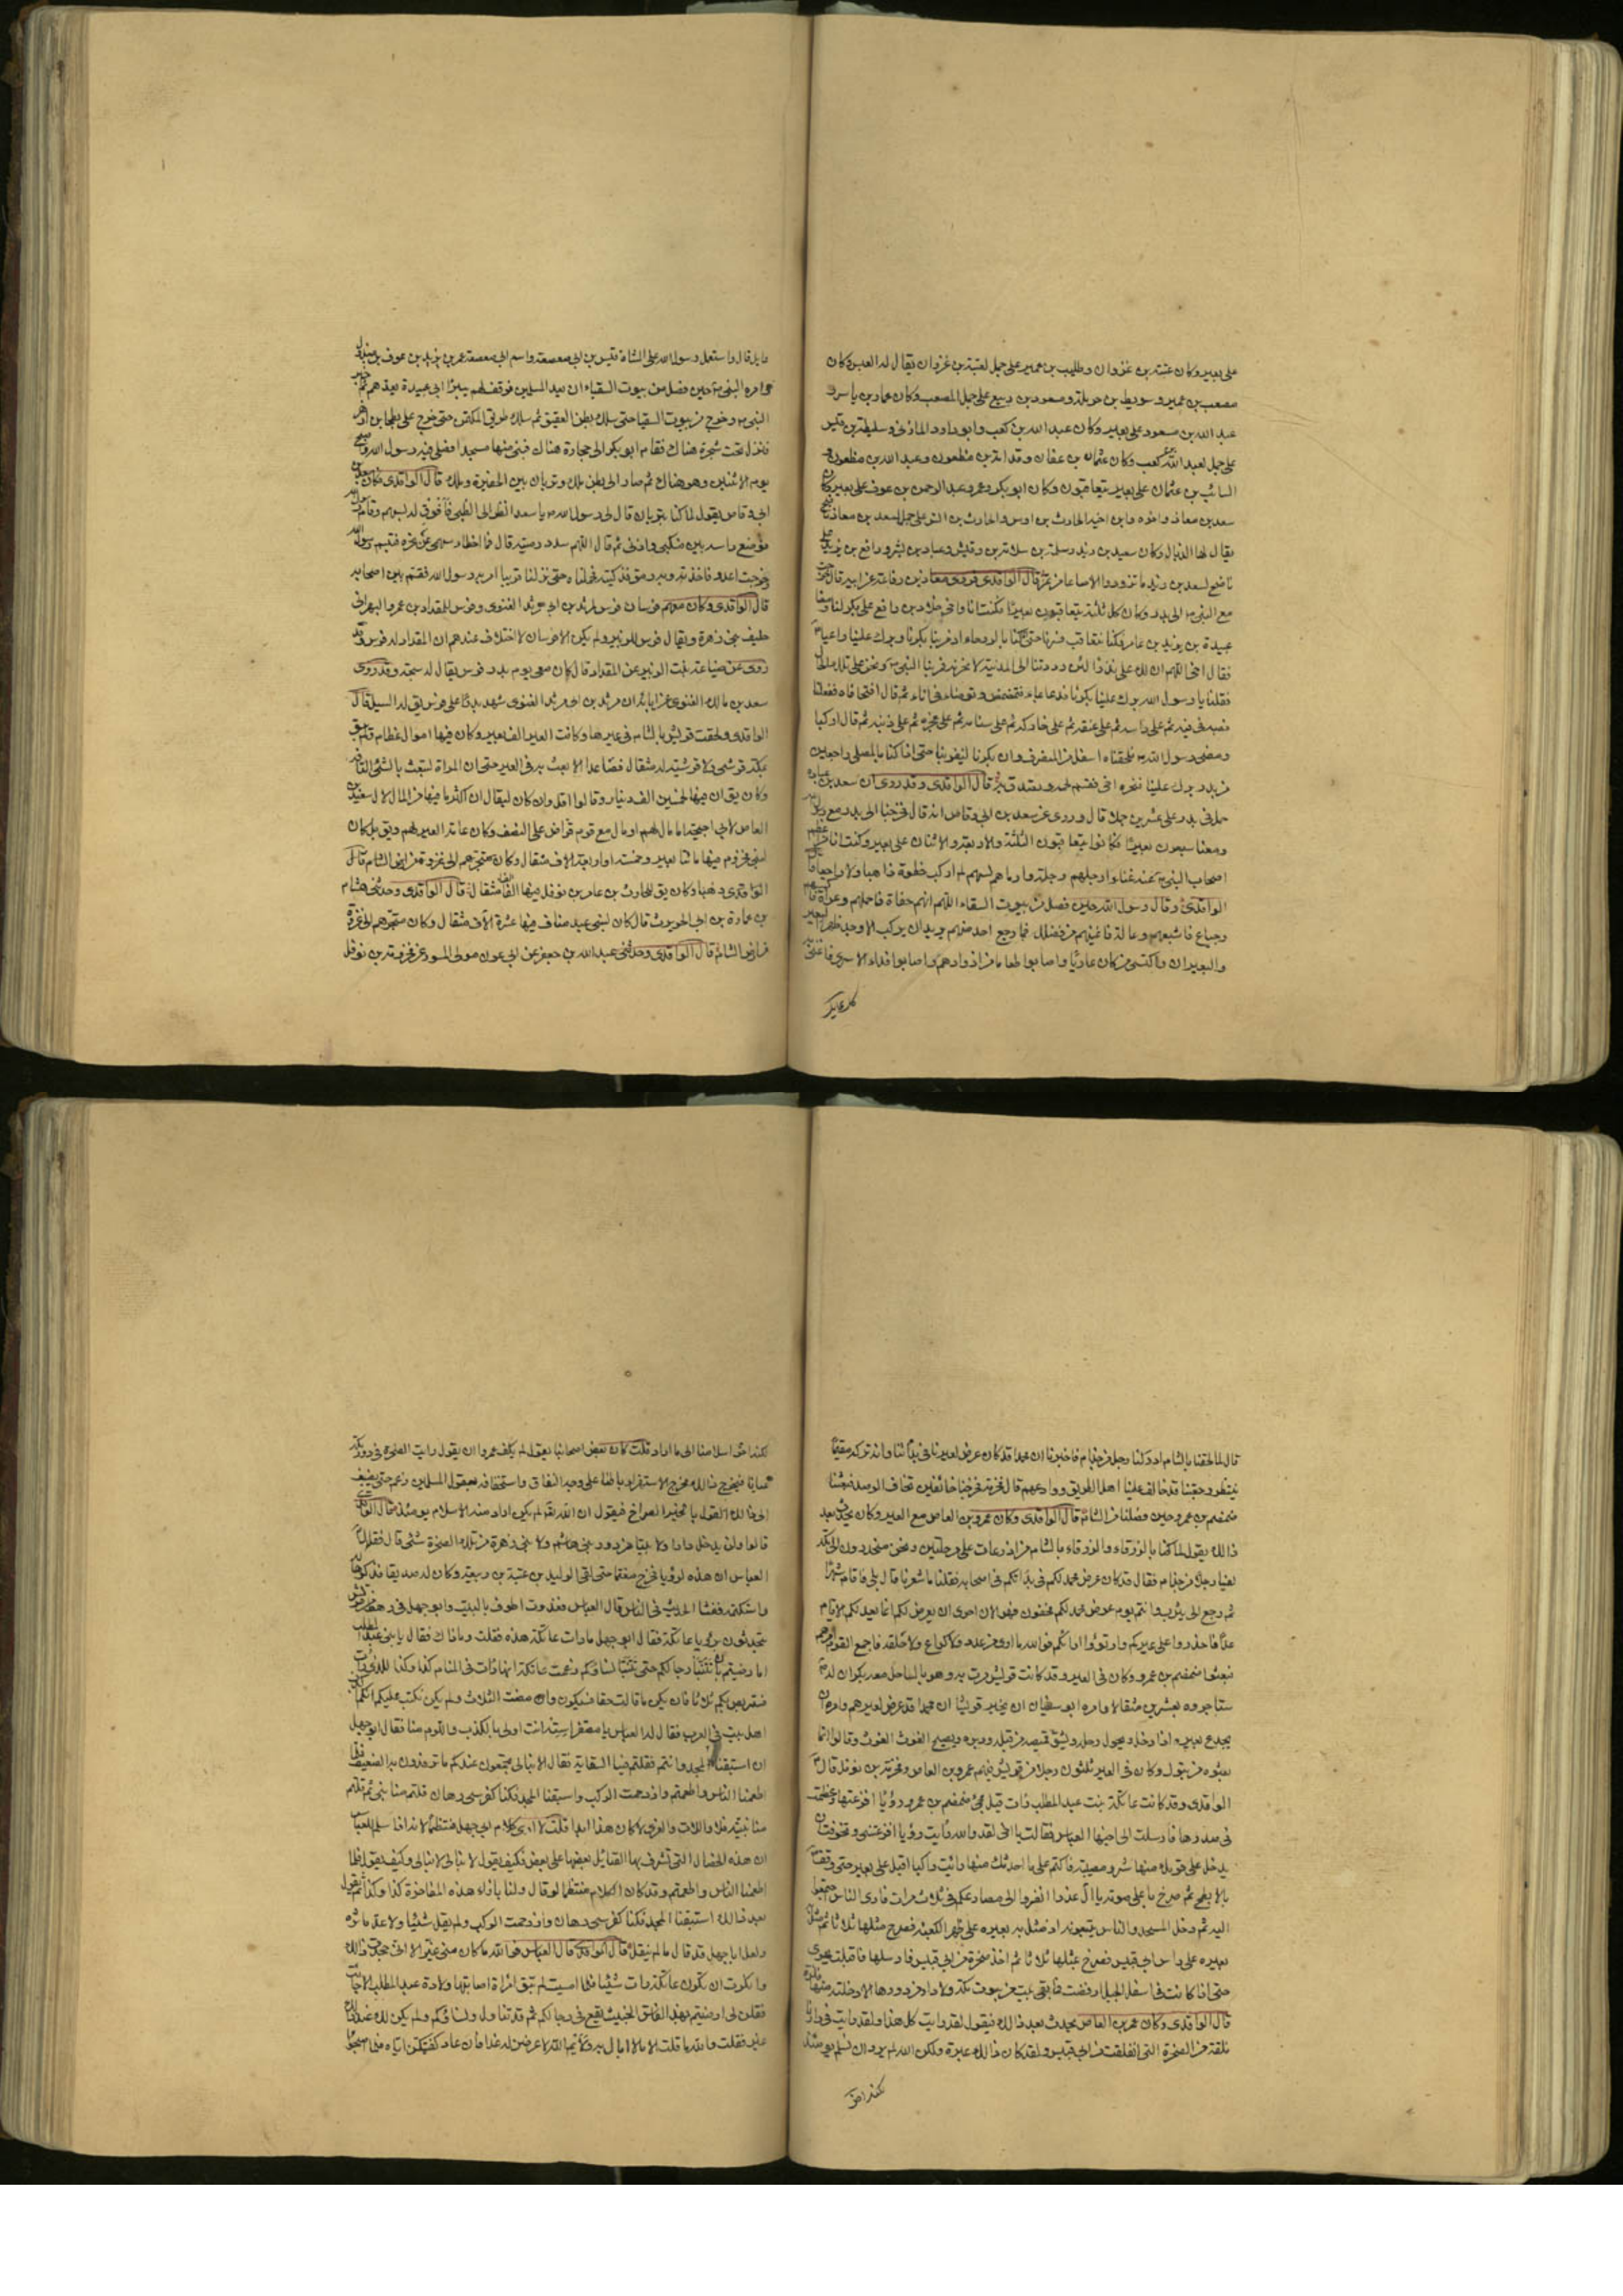 على بعير وكان عتبة بن غزوان وطليب بن عمير على جمل لعتبة بن غزوان يقال له العبس وكان
مصعب بن عمير وسويط بن حرملة ومسعود بن ربيع على جمل لمصعب وكان عمار بن ياسر و
عبد الله بن مسعود على بعير وكان عبد الله بن كعب وابو داود المازنى وسليط بن قيس
على جمل لعبد الله بن كعب وكان عثمان بن عفان وقدامة بن مظعون وعبد الله بن مظعون و
السائب بن عثمان على بعير يتعاقبون وكان ابو بكر وعمر وعبد الرحمن بن عوف على بعير وكان
سعد بن معاذ واخوه وابن اخيه الحارث بن اوس والحارث بن انس على جمل لسعد بن معاذ ناضح
يقال لها الذيال وكان سعيد بن زيد وسلمة بن سلامة بن وقش وعباد بن بشر ورافع بن يزيد على
ناضح لسعد بن زيد ما تزودوا الا صاعا من تمر قال الواقدى فروى معاذ بن رفاعة عن ابيه قال خرجت
مع النبى ص الى بدر وكان كل ثلثة يتعاقبون بعيرا فكنت انا واخى خلاد بن رافع على بكر لنا ومعنا
عبيدة بن يزيد بن عامر فكنا نتعاقب فسرنا حتى اذا كنا بالروحاء اذ مر بنا بكرنا وبرك علينا واعيا
فقال اخى اللهم ان لك على نذرا لئن رددتنا الى المدينة لانحرنه فمر بنا النبى ص ونحن على تلك الحال
فقلنا يا رسول الله برك علينا بكرنا فدعا بماء فتمضمض وتوضاء فى اناء ثم قال افتحا فاه ففعلنا
فصبه فى فيه ثم على راسه ثم على عنقه ثم على حاركه ثم على سنامه ثم على عجزه ثم على ذنبه ثم قال اركبا
ومضى رسول الله ص فلحقناه اسفل من المنصرف وان بكرنا لينفر بنا حتى اذا كنا بالمصلى راجعين
من بدر برك علينا فنحره اخى فقسم لحمه وتصدق به قال الواقدى وقد روى ان سعد بن عبادة
حمل فى بدر على عشرين جملا قال وروى عن سعد بن ابى وقاص انه قال فخرجنا الى بدر مع رسول الله
ومعنا سبعون بعيرا فكانوا يتعاقبون الثلثة والاربعة والاثنان على بعير وكنت انا من اعظم
اصحاب النبى ص عنه غناء وارجلهم رجلة وارماهم لسهم لم اركب خطوة ذاهبا ولا راجعا قال
الواقدى وقال رسول الله حين فصل من بيوت السقيا اللهم انهم حفاة فاحملهم وعراة فاكسهم
وجياع فاشبعهم وعالة فاغنهم من فضلك فما رجع احد منهم يريد ان يركب الا وجد ظهرا البعير
والبعيران واكتسى من كان عاريا واصابوا طعاما من ازوادهم واصابوا فداء الاسرى فاغنى
كل عايل
عايل قال واستعمل رسول الله على المشاة قيس بن ابى صعصعة واسم ابى صعصعة عمر بن يزيد بن عوف بن مبذول
وامره النبى ص حين فصل من بيوت السقياء ان يعد المسلمين فوقف لهم ببئر ابى عبيدة يعدهم ثم اخبر
النبى ص وخرج من بيوت السقيا حتى سلك بطن العقيق ثم سلك طريق المكتمن حتى خرج على بطحا بن ازهر
فنزل تحت شجرة هناك فقام ابو بكر الى حجارة هناك فبنى منها مسجدا فصلى فيه رسول الله واصبح
يوم الاثنين وهو هناك ثم صار الى بطن ملل وتربان بين الحفيرة وملل قال الواقدى فكان سعد بن
ابى وقاص يقول لما كنا بتربان قال لى رسول الله ص يا سعد انظر الى الظبى فافوق له بسهم وقام رسول الله
فوضع راسه بين منكبى واذنى ثم قال اللهم سدد رميته قال فما اخطاء سهمى عن نحره فتبسم رسول الله
وخرجت اعدو فاخذته وبه رمق فذكيته فحملناه حتى نزلنا قريبا امر به رسول الله فقسم بين اصحابه
قال الواقدى وكان معهم فرسان فرس لمرثد بن ابى مرثد الغنوى وفرس للمقداد بن عمرو البهرانى
حليف بنى زهرة ويقال فرس للزبير ولم يكن الا فرسان لا اختلاف عندهم ان المقداد له فرس وقد
روى عن ضباعة بنت الزبير عن المقداد قال كان معى يوم بدر فرس يقال له سبحة وقد روى
سعد بن مالك الغنوى عن ابائه ان مرثد بن ابى مرثد الغنوى شهد بدرا على فرس يق له السيل قال
الواقدى ولحقت قريش بالشام فى عيرها وكانت العير الف بعير وكان فيها اموال عظام ولم يبق
بمكة قرشى ولا قرشية له مثقال فصاعدا الا بعث به فى العير حتى ان المراة لتبعث بالشئ التافه
وكان يق ان فيها لخمسين الف دينار وقالوا اقل وان كان ليقال ان اكثر ما فيها من المال لال سعيد بن
العاص لابى احيحة اما مال لهم او مال مع قوم قراض على النصف وكان عامة العير لهم ويق بل كان
لبنى مخزوم فيها مائتا بعير وخمسة او اربعة الاف مثقال وكان متجرهم الى غزوة من ارض الشام قال
الواقدى ذهبا وكان يق للحارث بن عامر بن نوفل فيها الفا مثقال قال الواقدى وحدثنى هشام
بن عمارة بن ابى الحويرث قال كان لبنى عبد مناف فيها عشرة الاف مثقال وكان متجرهم الى غزة
من ارض الشام قال الواقدى وحدثنى عبد الله بن جعفر عن ابى عون مولى المسور عن مخرمة بن نوفل
قال لما لحقنا بالشام ادركنا رجل من جذام فاخبرنا ان محمدا قد كان عرض لعيرنا فى بداتنا وانه تركه مقيما
ينتظر رجعتنا قد حالف علينا اهل الطريق ووادعهم قال مخرمة فخرجنا خائفين نخاف الرصد فبعثنا
ضمضم بن عمرو حين فصلنا من الشام قال الواقدى وكان عمرو بن العاص مع العير وكان يحدث بعد
ذالك يقول لما كنا بالزرقاء والزرقاء بالشام من اذرعات على مرحلتين ونحن منحدرون الى مكة
لقينا رجلا من جذام فقال قد كان عرض محمد لكم فى بداتكم فى اصحابه فقلنا ما شعرنا قال بلى فاقام شهرا
ثم رجع الى يثرب وانتم يوم عرض محمد لكم مخفون فهو الان احرى ان يعرض لكم انما يعد لكم الايام
عدا فاحذروا على عيركم وارتؤا اراكم فوالله ما ارى من عدد ولا كراع ولا حلقة فاجمع القوم امرهم
فبعثوا ضمضم بن عمرو وكان فى العير وقد كانت قريش مرت به وهو بالساحل معه بكران له
ستاجروه بعشرين مثقالا وامره ابو سفيان ان يخبر قريشا ان محمدا قد عرض لعيرهم وامره ان
يجدع بعيره اذا دخل ويحول رحله ويشق قميصه من قبله ودبره ويصيح الغوث الغوث وقالوا انما
بعثوه من تبوك وكان فى العير ثلثون رجلا من قريش فيهم عمرو بن العاص ومخرمة بن نوفل قال
الواقدى وقد كانت عاتكة بنت عبد المطلب رات قبل مجئ ضمضم بن عمرو رؤيا افزعتها وعظمت
فى صدرها فارسلت الى اخيها العباس فقالت يا اخى لقد والله رايت رؤيا افزعتنى وتخوفت ان
يدخل على قومك منها شر ومصيبة فاكتم على ما احدثك منها رايت راكبا اقبل على بعير حتى وقف
بالابطح ثم صرخ باعلى صوته يا ال غدر انفروا الى مصارعكم فى ثلاث مرات فارى الناس اجتمعوا
اليه ثم دخل المسجد والناس يتبعونه اذ مثل به بعيره على ظهر الكعبة فصرخ مثلها ثلاثا ثم مثل به
بعيره على راس ابى قبيس فصرخ بمثلها ثلاثا ثم اخذ صخرة من ابى قبيس فارسلها فاقبلت تهوى
حتى اذا كانت فى اسفل الجبل ارفضت فما بقى بيت من بيوت مكة ولا دار من دورها الا دخلته منها فلذة
قال الواقدى وكان عمر بن العاص يحدث بعد ذالك فيقول لقد رايت كل هذا ولقد رايت فى دارنا
فلقة من الصخرة التى انفلقت من ابى قبيس ولقد كان ذالك عبرة ولكن الله لم يرد ان نسلم يومئذ
لكنه اخر
لكنه اخر اسلامنا الى ما اراد قلت كان بعض اصحابنا يقول لم يكف عمروا ان يقول رايت الصخرة فى دور مكة
فيخرج ذالك مخرج الاستهزاء باطنا على وجه النفاق واستخفافه بعقول المسلمين زعم حتى يضيف
الى ذالك القول بالخبر الصراح فيقول ان الله تع لم يكن اراد منه الاسلام يومئذ قال الواقدى
قالوا ولم يدخل دارا ولا بيتا من دور بنى هاشم ولا بنى زهرة من تلك الصخرة شئ قال فقال
العباس ان هذه لرؤيا فخرج مغتما حتى لقى الوليد بن عتبة بن ربيعة وكان له صديقا فذكرها له
واستكتمه ففشا الحديث فى الناس قال العباس فغدوت اطوف بالبيت وابو جهل فى رهط من قريش
يتحدثون برؤيا عاتكة فقال ابو جهل ما رات عاتكة هذه فقلت وما ذاك فقال يا بنى عبد المطلب
اما رضيتم بان تتنبا رجالكم حتى تتنبا نساؤكم زعمت عاتكة انها رات فى المنام كذا وكذا للذى رات
فنتربص بكم ثلاثا فان يكن ما قالت حقا فسيكون وان مضت الثلاث ولم يكن نكتب عليكم انكم اكذب
اهل بيت فى العرب فقال له العباس يا مصفر استه انت اولى بالكذب واللوم منا فقال ابو جهل
ان استبقنا المجد وانتم فقلتم فينا السقاية فقال لا نبالى تسقون الحاج
اطعمنا الناس واطعمتم وازدحمت الركب واستبقنا المجد فكنا كفرسى رهان قلتم منا نبى ثم قلتم
منا نبية فلا واللات والعزى لا كان هذا ابدا قلت لا ارى كلام ابى جهل منتظما لانه اذا سلم للعباس
ان هذه الخصال التى تشرف بها القبائل بعضها على بعض فكيف يقول لا نبالى لا نبالى وكيف يقول فلما
اطعمنا الناس واطعمتم وقد كان الكلام منتظما لو قال ولنا بازاء هذه المفاخرة كذا وكذا ثم يقول
بعد ذالك استبقنا المجد فكنا كفرسى رهان وازدحمت الركب ولم يقل شيئا ولا عد ماثره
ولعل ابا جهل قد قال ما لم ينقل قال الواقدى قال العباس فوالله ما كان منى غير الا انى جحدت ذالك
وانكرت ان تكون عاتكة رات شيئا فلما امسيت لم تبق امراة اصابتها ولادة عبد المطلب الا جائت
فقلن لى ارضيتم بهذا الفاسق الخبيث يقع فى رجالكم ثم قد تناول نساؤكم ولم يكن لك عند ذالك
غير فقلت والله ما قلت الا لانى لا ابالى به ولايم الله لاعرضن له غدا فان عاد كفيتكن اياه فلما اصبحوا